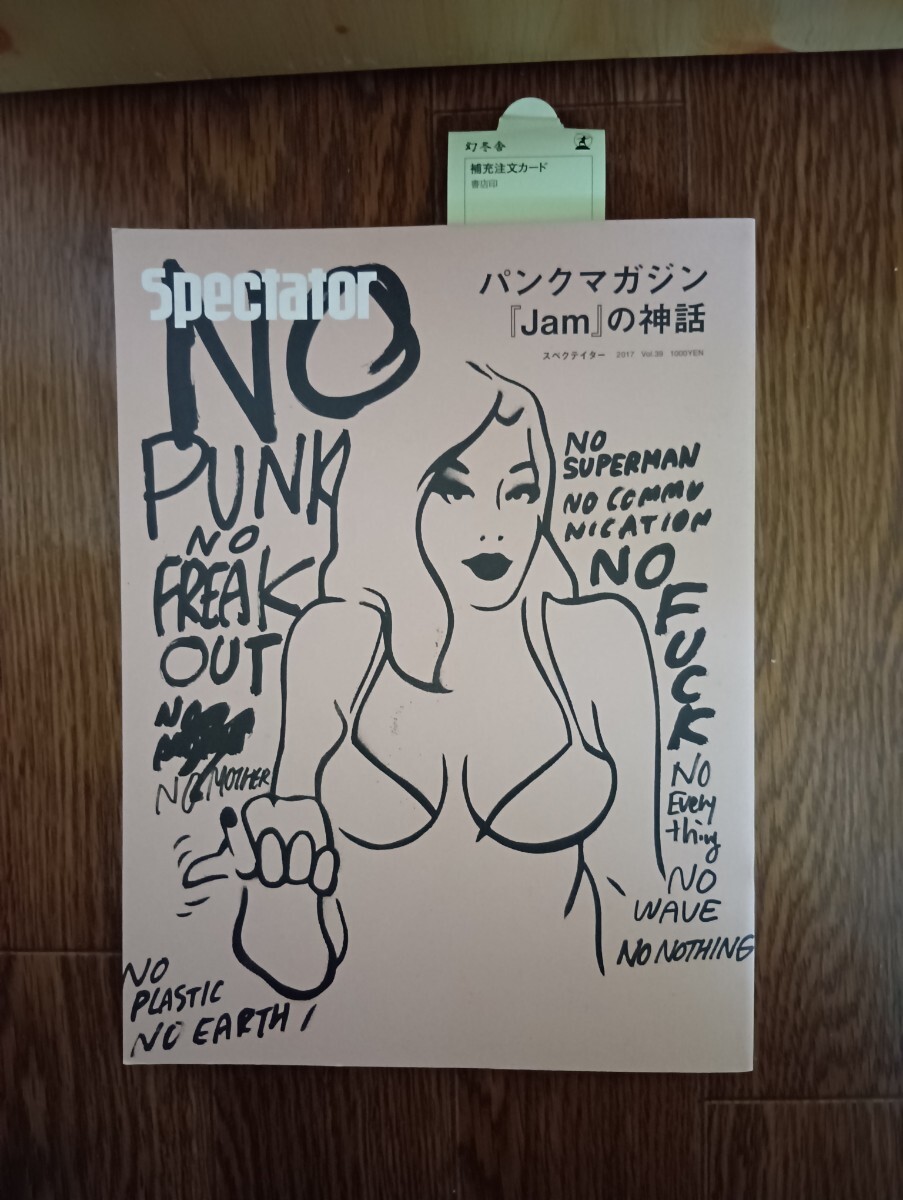 幻冬舎
補充注文カード
書店印
Spectator
パンクマガジン
『Jam』の神話
スペクテイター 2017 Vol.39 1000YEN
NO
PUNK
NO
FREAK
OUT
NO
NO MOTHER
NO
PLASTIC
NO EARTH
NO
SUPERMAN
NO COMMU
NICATION
NO
FUCK
NO
Every
thing
NO
WAVE
NO NOTHING